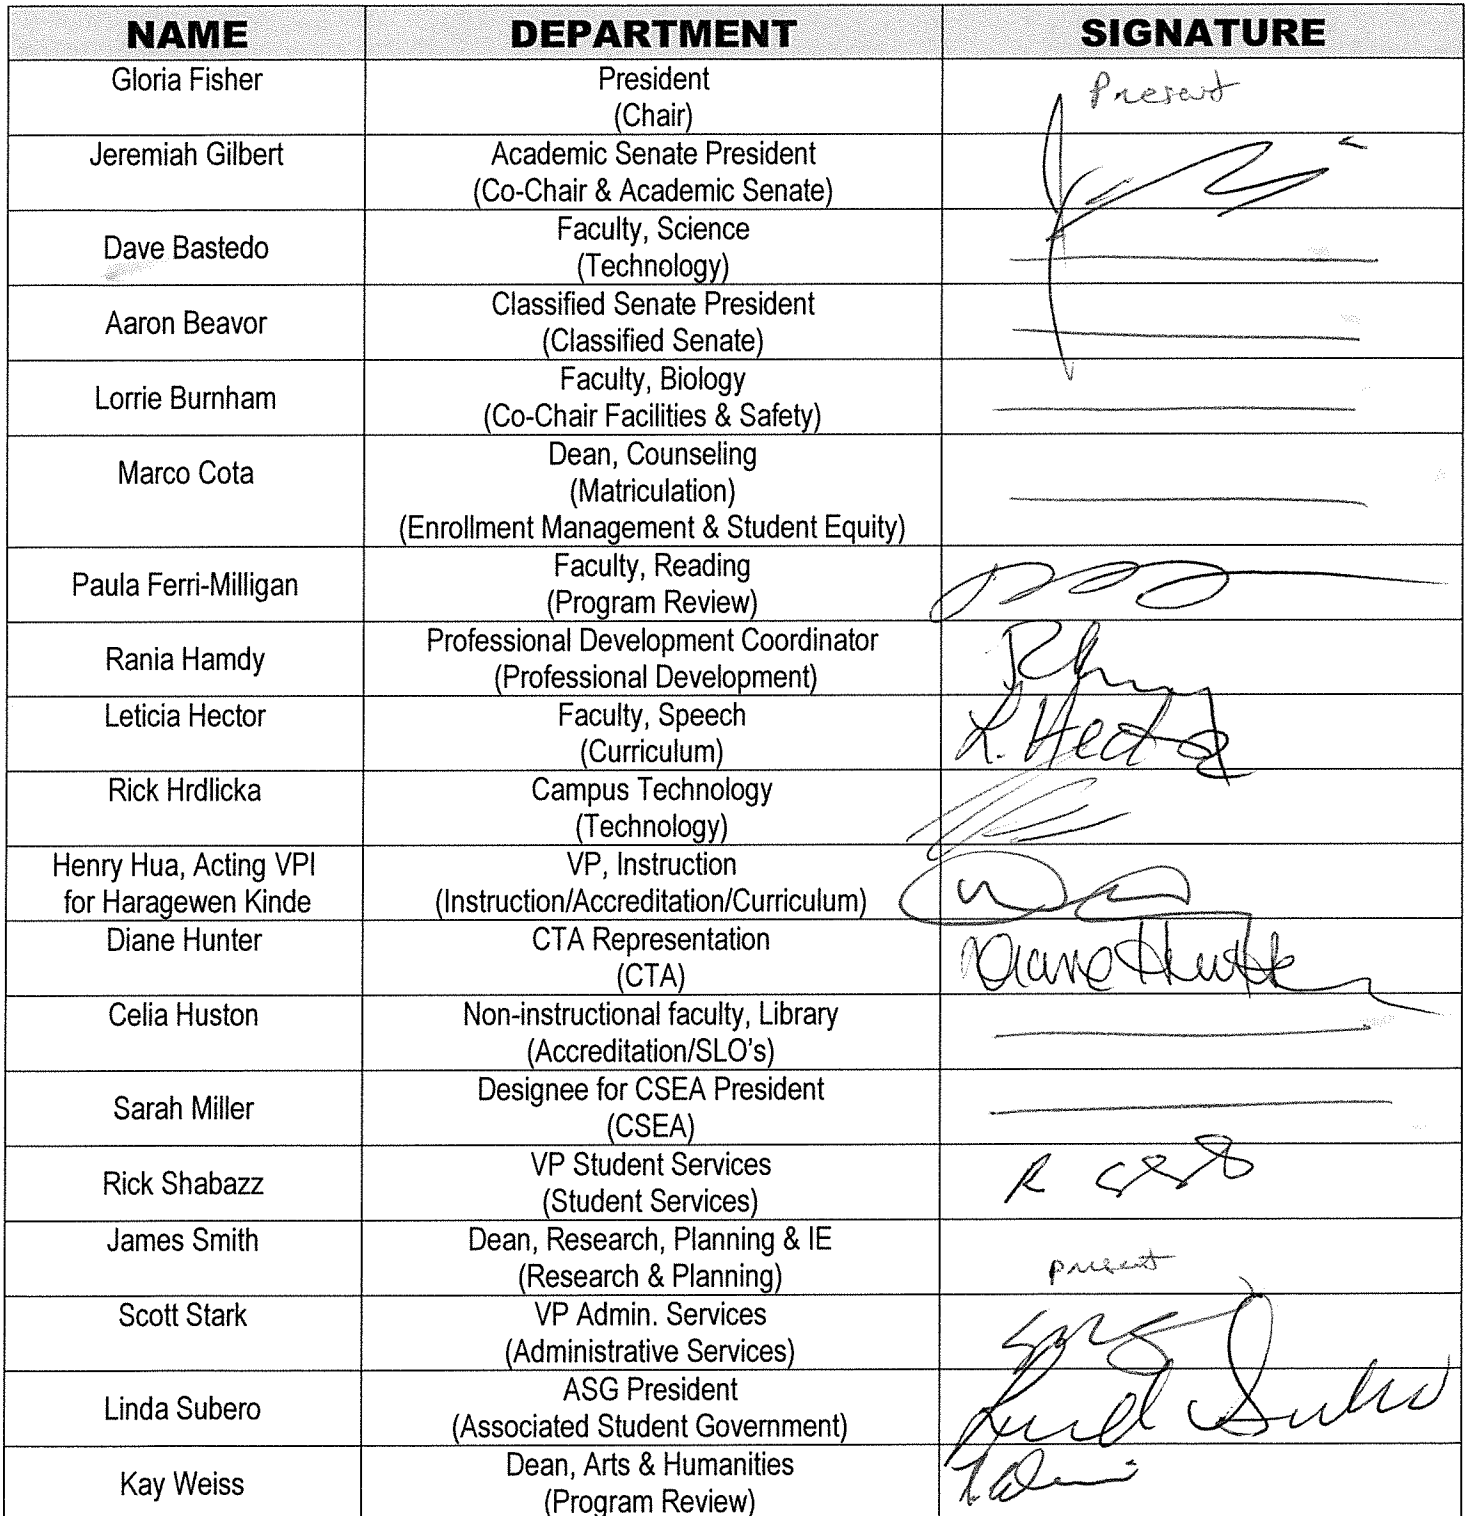 NAME DEPARTMENT SIGNATURE
Gloria Fisher President Present
(Chair)
Jeremiah Gilbert Academic Senate President
(Co-Chair & Academic Senate)
Dave Bastedo Faculty, Science
(Technology)
Aaron Beavor Classified Senate President
(Classified Senate)
Lorrie Burnham Faculty, Biology
(Co-Chair Facilities & Safety)
Marco Cota Dean, Counseling
(Matriculation)
(Enrollment Management & Student Equity)
Paula Ferri-Milligan Faculty, Reading
(Program Review)
Rania Hamdy Professional Development Coordinator
(Professional Development)
Leticia Hector Faculty, Speech L. Hector
(Curriculum)
Rick Hrdlicka Campus Technology
(Technology)
Henry Hua, Acting VPI VP, Instruction
for Haragewen Kinde (Instruction/Accreditation/Curriculum)
Diane Hunter CTA Representation Diane Hunter
(CTA)
Celia Huston Non-instructional faculty, Library
(Accreditation/SLO's)
Sarah Miller Designee for CSEA President
(CSEA)
Rick Shabazz VP Student Services
(Student Services)
James Smith Dean, Research, Planning & IE present
(Research & Planning)
Scott Stark VP Admin. Services
(Administrative Services)
Linda Subero ASG President
(Associated Student Government)
Kay Weiss Dean, Arts & Humanities
(Program Review)